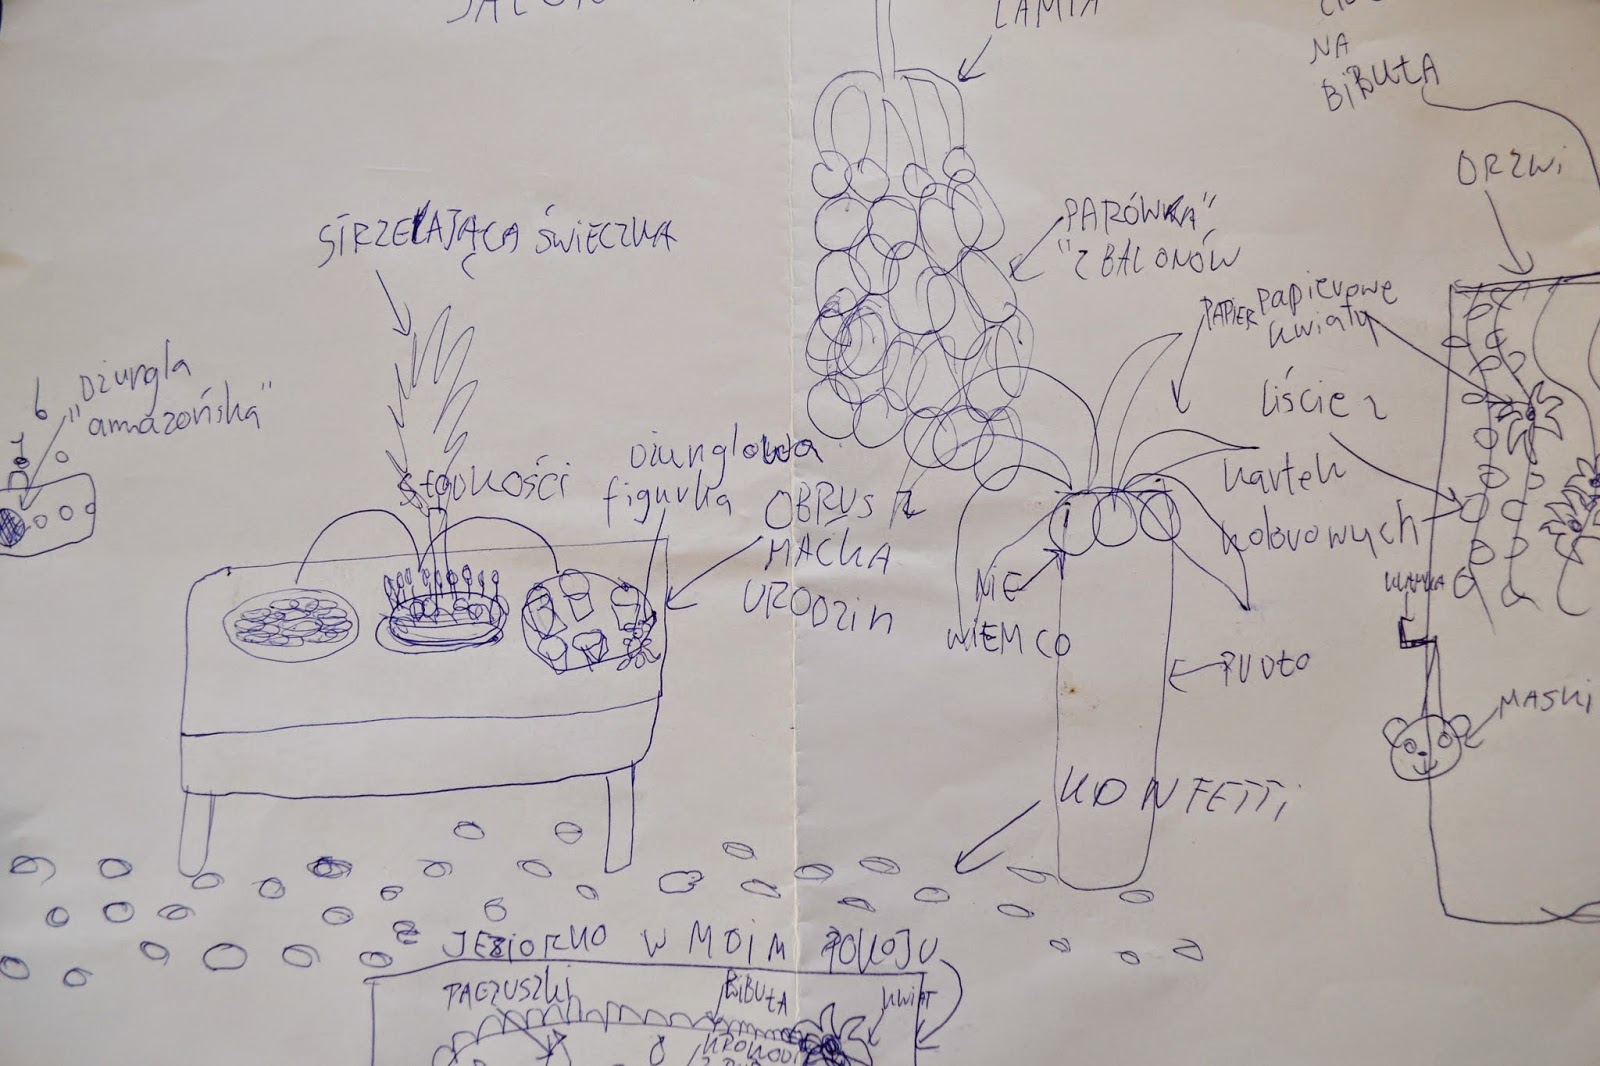 LAMPA
NA
BIBUŁA
DRZWI
STRZELAJĄCA ŚWIECZKA
PARÓWKA"
"Z BALONÓW
PAPIER papierowe
kwiaty
liście z
kartek
kolorowych
Dżungla
"amazońska"
słodkości
Dżunglowa
figurka
OBRUS Z
MAĆKA
URODZIN
NIE
WIEM CO
KLAMKA
PUDŁO
MASKI
KONFETTi
JEZIORKO W MOIM POKOJU
PACZUSZKi
BiBUŁA
KWIAT